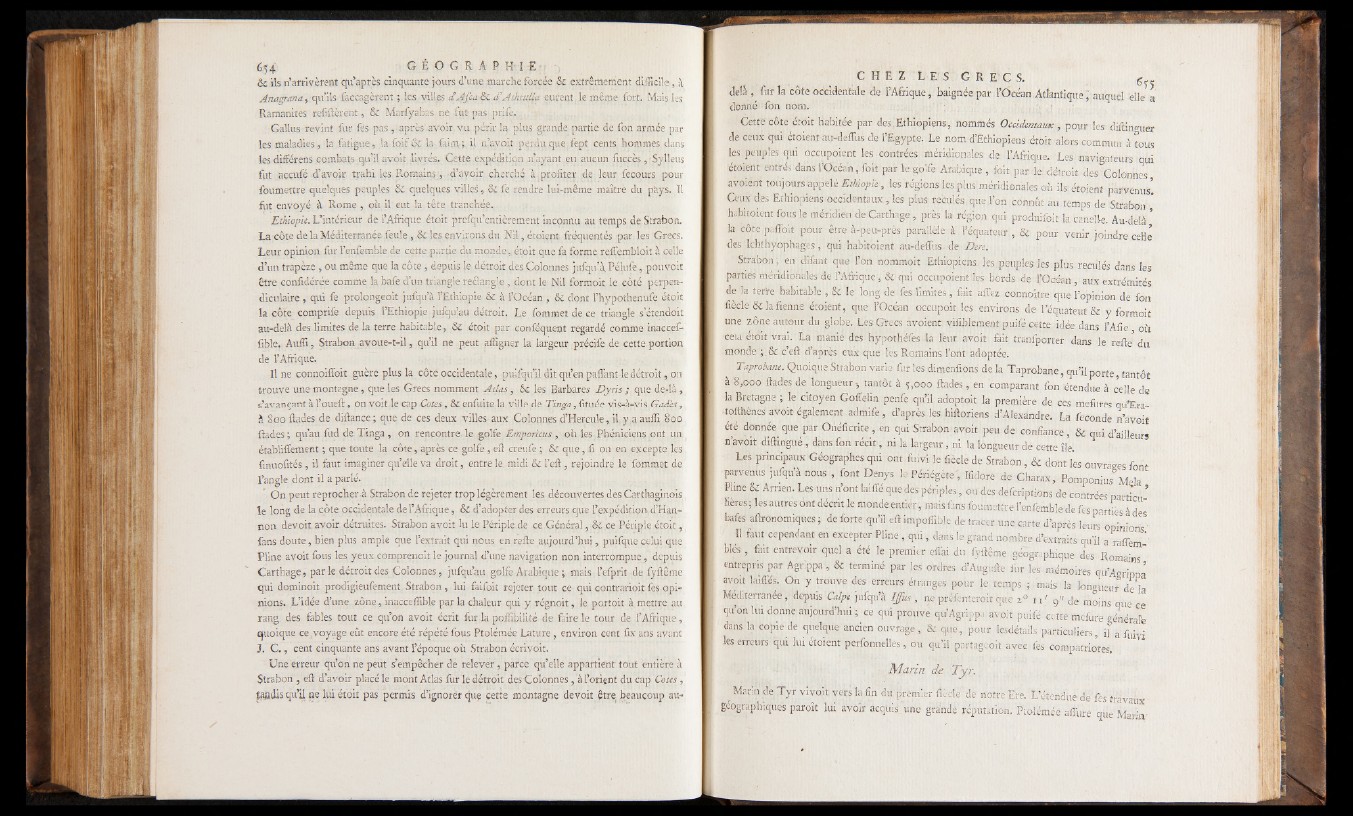 654 GÉOGRAPHIE
& ils n'arrivèrent qu'après cinquante jours d'une marche forcée & extrêmement difficile, à
Anagrana, qu'ils saccagèrent ; les villes d'Asca & d'Athrulla eurent le même sort. Mais les
Ramanites résistèrent, & Marsyabas ne fut pas prise.
Gallus revint sur ses pas, après avoir vu périr la plus grande partie de son armée par
les maladies, la fatigue, la soif & la faim ; il n'avoit perdu que sept cents hommes dans
les différens combats qu'il avoit livrés. Cette expédition n'ayant eu aucun succès, Sylleus
fut accusé d'avoir trahi les Romains, d'avoir cherché à profiter de leur secours pour
soumettre quelques peuples & quelques villes, & se rendre lui-même maître du pays. Il
fut envoyé à Rome, où il eut la tête tranchée.
Ethiopie. L'intérieur de l'Afrique étoit presqu'entièrement inconnu au temps de Strabon.
La côte de la Méditerranée seule, & les environs du Nil, étoient fréquentés par les Grecs.
Leur opinion sur l'ensemble de cette partie du monde, étoit que sa forme ressembloit à celle
d'un trapèze, ou même que la côte, depuis le détroit des Colonnes jusqu'à Péluse, pouvoit
être considérée comme la base d'un triangle rectangle, dont le Nil formoit le côté perpen-
diculaire, qui se prolongeoit jusqu'à l'Ethiopie & à l'Océan, & dont l'hypothenuse étoit
la côte comprise depuis l'Ethiopie jusqu'au détroit. Le sommet de ce triangle s'étendoit
au-delà des limites de la terre habitable, & étoit par conséquent regardé comme inacces-
sible. Aussi, Strabon avoue-t-il, qu'il ne peut assigner la largeur précise de cette portion
de l'Afrique.
Il ne connoissoit guère plus la côte occidentale, puisqu'il dit qu'en passant le détroit, on
trouve une montagne, que les Grecs nomment Atlas, & les Barbares Dyris ; que de-là,
s'avançant à l'ouest, on voit le cap Cotes, & ensuite la ville de Tinga, située vis-à-vis Gades,
à 800 stades de distance ; que de ces deux villes aux Colonnes d'Hercule, il y a aussi 800
stades ; qu'au sud de Tinga, on rencontre le golfe Emporicus, où les Phéniciens ont un
établissement ; que toute la côte, après ce golfe, est creuse ; & que, si on en excepte les
sinuosités, il faut imaginer qu'elle va droit, entre le midi & l'est, rejoindre le sommet de
l'angle dont il a parlé.
On peut reprocher à Strabon de rejeter trop légèrement les découvertes des Carthaginois
le long de la côte occidentale de l'Afrique, & d'adopter des erreurs que l'expédition d'Han-
non devoit avoir détruites. Strabon avoit lu le Périple de ce Général, & ce Périple étoit,
sans doute, bien plus ample que l'extrait qui nous en reste aujourd'hui, puisque celui que
Pline avoit sous les yeux comprenoit le journal d'une navigation non interrompue, depuis
Carthage, par le détroit des Colonnes, jusqu'au golfe Arabique ; mais l'esprit de système
qui dominoit prodigieusement Strabon, lui faisoit rejeter tout ce qui contrarioit ses opi-
nions. L'idée d'une zône, inaccessible par la chaleur qui y régnoit, le portoit à mettre au
rang des fables tout ce qu'on avoit écrit sur la possibilité de faire le tour de l'Afrique,
quoique ce voyage eût encore été répété sous Ptolémée Lature, environ cent six ans avant
J. C., cent cinquante ans avant l'époque où Strabon écrivoit.
Une erreur qu'on ne peut s'empêcher de relever, parce qu'elle appartient tout entière à
Strabon, est d'avoir placé le mont Atlas sur le détroit des Colonnes, à l'orient du cap Cotes,
tandis qu'il ne lui étoit pas permis d'ignorer que cette montagne devoit être beaucoup au-
CHEZ LES GRECS. 655
delà, sur la côte occidentale de l'Afrique, baignée par l'Océan Atlantique, auquel elle a
donné son nom.
Cette côte étoit habitée par des Ethiopiens, nommés Occidentaux, pour les distinguer
de ceux qui étoient au-dessus de l'Egypte. Le nom d'Ethiopiens étoit alors commun à tous
les peuples qui occupoient les contrées méridionales de l'Afrique. Les navigateurs qui
étoient entrés dans l'Océan, soit par le golfe Arabique, soit par le détroit des Colonnes,
avoient toujours appelé Ethiopie, les régions les plus méridionales où ils étoient parvenus.
Ceux des Ethiopiens occidentaux, les plus reculés que l'on connût au temps de Strabon,
habitoient sous le méridien de Carthage, près la région qui produisoit la canelle. Au-delà,
la côte passoit pour être à-peu-près parallèle à l'équateur, & pour venir joindre celle
des Ichthyophages, qui habitoient au-dessus de Dere.
Strabon, en disant que l'on nommoit Ethiopiens les peuples les plus reculés dans les
parties méridionales de l'Afrique, & qui occupoient les bords de l'Océan, aux extrémités
de la terre habitable, & le long de ses limites, fait assez connoître que l'opinion de son
siècle & la sienne étoient, que l'Océan occupoit les environs de l'équateur & y formoit
une zône autour du globe. Les Grecs avoient visiblement puisé cette idée dans l'Asie, où
cela étoit vrai. La manie des hypothèses la leur avoit fait transporter dans le reste du
monde ; & c'est d'après eux que les Romains l'ont adoptée.
Taprobane. Quoique Strabon varie sur les dimensions de la Taprobane, qu'il porte, tantôt
à 8,000 stades de longueur, tantôt à 5,000 stades, en comparant son étendue à celle de
la Bretagne ; le citoyen Gossellin pense qu'il adoptoit la première de ces mesures qu'Era-
tosthènes avoit également admise, d'après les historiens d'Alexandre. La seconde n'avoit
été donnée que par Onésicrite, en qui Strabon avoit peu de confiance, & qui d'ailleurs
n'avoit distingué, dans son récit, ni la largeur, ni la longueur de cette île.
Les principaux Géographes qui ont suivi le siècle de Strabon, & dont les ouvrages sont
parvenus jusqu'à nous, sont Denys le Périégète, Isidore de Charax, Pomponius Mela,
Pline & Arrien. Les uns n'ont laissé que des périples, ou des descriptions de contrées particu-
lières ; les autres ont décrit le monde entier, mais sans soumettre l'ensemble de ses parties à des
bases astronomiques ; de sorte qu'il est impossible de tracer une carte d'après leurs opinions.
Il faut cependant en excepter Pline, qui, dans le grand nombre d'extraits qu'il a rassem-
blés, fait entrevoir quel a été le premier essai du système géographique des Romains,
entrepris par Agrippa, & terminé par les ordres d'Auguste sur les mémoires qu'Agrippa
avoit laissés. On y trouve des erreurs étranges pour le temps ; mais la longueur de la
Méditerranée, depuis Calpe jusqu'à Issus, ne présenteroit que 2° 11′ 9″ de moins que ce
qu'on lui donne aujourd'hui ; ce qui prouve qu'Agrippa avoit puisé cette mesure générale
dans la copie de quelque ancien ouvrage, & que, pour les détails particuliers, il a suivi
les erreurs qui lui étoient personnelles, ou qu'il partageoit avec ses compatriotes.
Marin de Tyr.
Marin de Tyr vivoit vers la fin du premier siècle de notre Ere. L'étendue de ses travaux
géographiques paroit lui avoir acquis une grande réputation. Ptolémée assure que Marin